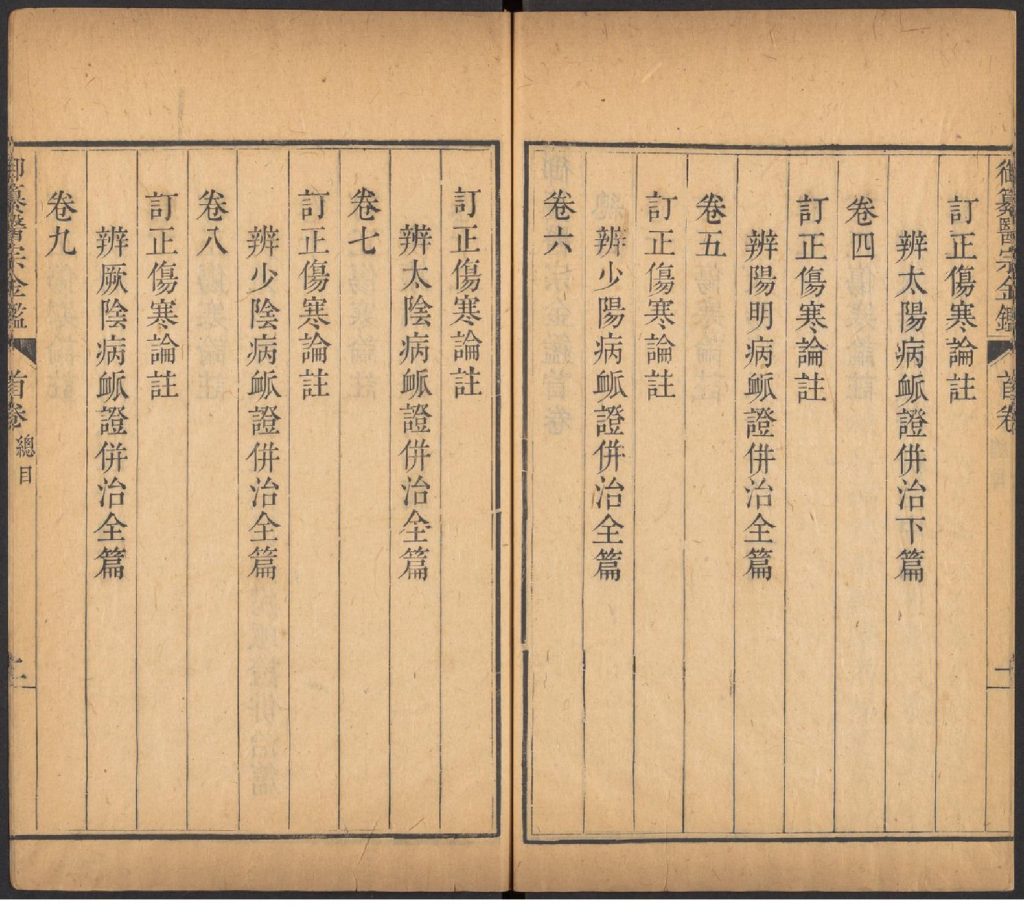 御纂醫宗金鑑 首卷
訂正傷寒論註
辨太陽病脈證併治下篇
卷四
訂正傷寒論註
辨陽明病脈證併治全篇
卷五
訂正傷寒論註
辨少陽病脈證併治全篇
卷六
訂正傷寒論註
辨太陰病脈證併治全篇
卷七
訂正傷寒論註
辨少陰病脈證併治全篇
卷八
訂正傷寒論註
辨厥陰病脈證併治全篇
卷九
御纂醫宗金鑑 首卷 總目